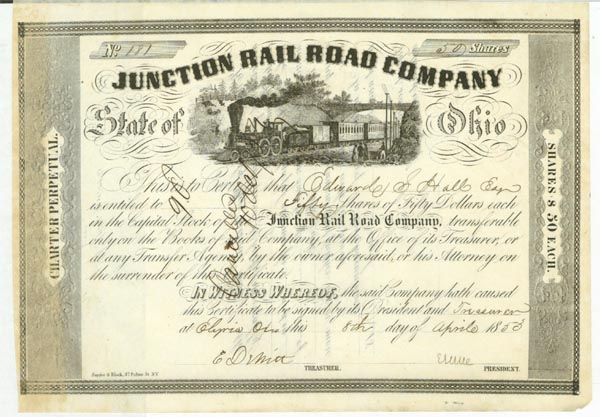 No 181
50 Shares
JUNCTION RAIL ROAD COMPANY
State of Ohio
CHARTER PERPETUAL.
SHARES $ 50 EACH.
This is to Certify that Edward S Hall Esqr
is entitled to Fifty Shares of Fifty Dollars each
in the Capital Stock of Junction Rail Road Company, transferable
only on the Books of said Company, at the Office of its Treasurer, or
at any Transfer Agency, by the owner aforesaid, or his Attorney on
the surrender of this Certificate.
IN WITNESS WHEREOF, the said Company hath caused
this Certificate to be signed by its President and Treasurer
at Elyria Ohio this 5th day of April 1853
TREASURER.
PRESIDENT.